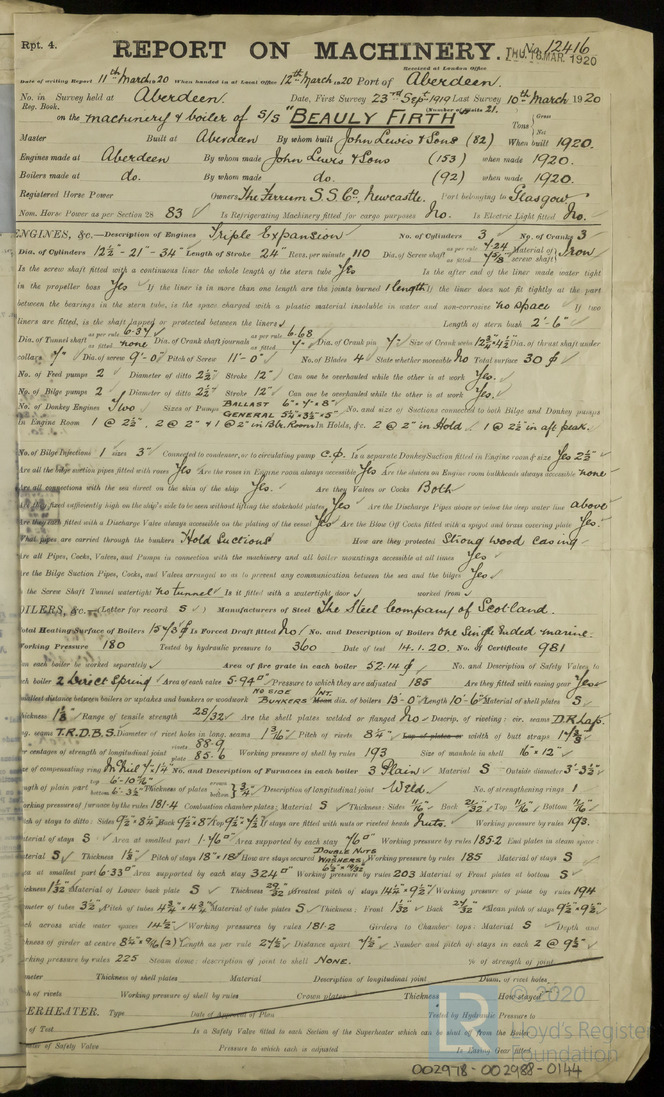 Rpt. 4.
REPORT ON MACHINERY.
No. 12416
THU. 18 MAR. 1920
Received at London Office
Date of writing Report 11th March 1920 When handed in at Local Office 12th March 1920 Port of Aberdeen.
No. in Survey held at Aberdeen. Date, First Survey 23rd Sept 1919 Last Survey 10th March 1920
Reg. Book. (Number of Visits 21.
on the machinery & boiler of S/S "BEAULY FIRTH" Tons { Gross Net
Master Built at Aberdeen By whom built John Lewis & Sons (82) When built 1920.
Engines made at Aberdeen By whom made John Lewis & Sons (153) when made 1920.
Boilers made at do. By whom made do. (92) when made 1920.
Registered Horse Power Owners The Ferrum S.S. Co, Newcastle. Port belonging to Glasgow
Nom. Horse Power as per Section 28 83 Is Refrigerating Machinery fitted for cargo purposes No. Is Electric Light fitted No.
ENGINES, &c.—Description of Engines Triple Expansion No. of Cylinders 3 No. of Cranks 3
Dia. of Cylinders 12½" - 21" - 34" Length of Stroke 24" Revs. per minute 110 Dia. of Screw shaft as per rule 7.24 as fitted 7 5/8" Material of screw shaft Iron
Is the screw shaft fitted with a continuous liner the whole length of the stern tube Yes Is the after end of the liner made water tight
in the propeller boss Yes If the liner is in more than one length are the joints burned 1 length If the liner does not fit tightly at the part
between the bearings in the stern tube, is the space charged with a plastic material insoluble in water and non-corrosive no space If two
liners are fitted, is the shaft lapped or protected between the liners Length of stern bush 2'-6"
Dia. of Tunnel shaft as per rule 6.37 as fitted none Dia. of Crank shaft journals as per rule 6.68 as fitted 7" Dia. of Crank pin 7" Size of Crank webs Dia. of thrust shaft under
collars 7" Dia. of screw 9'-0" Pitch of Screw 11'-0" No. of Blades 4 State whether moveable No Total surface 30
No. of Feed pumps 2 Diameter of ditto 2½" Stroke 12" Can one be overhauled while the other is at work Yes.
No. of Bilge pumps 2 Diameter of ditto 2½" Stroke 12" Can one be overhauled while the other is at work Yes.
No. of Donkey Engines Two Sizes of Pumps BALLAST 6" × 7" × 8" GENERAL 5¼" × 3½" × 5" No. and size of Suctions connected to both Bilge and Donkey pumps
In Engine Room 1 @ 2½", 2 @ 2" & 1 @ 2" in Blr. Room In Holds, &c. 2 @ 2" in Hold 1 @ 2½" in aft peak.
No. of Bilge Injections 1 sizes 3" Connected to condenser, or to circulating pump C.P. Is a separate Donkey Suction fitted in Engine room & size Yes 2½"
Are all the bilge suction pipes fitted with roses Yes Are the roses in Engine room always accessible Yes Are the sluices on Engine room bulkheads always accessible none
Are all connections with the sea direct on the skin of the ship Yes. Are they Valves or Cocks Both
Are they fixed sufficiently high on the ship's side to be seen without lifting the stokehold plates Yes Are the Discharge Pipes above or below the deep water line above
Are they each fitted with a Discharge Valve always accessible on the plating of the vessel Yes Are the Blow Off Cocks fitted with a spigot and brass covering plate Yes.
What pipes are carried through the bunkers Hold Suctions How are they protected Strong wood casing
Are all Pipes, Cocks, Valves, and Pumps in connection with the machinery and all boiler mountings accessible at all times Yes
Are the Bilge Suction Pipes, Cocks, and Valves arranged so as to prevent any communication between the sea and the bilges Yes
Is the Screw Shaft Tunnel watertight no tunnel Is it fitted with a watertight door worked from
BOILERS, &c.—(Letter for record S) Manufacturers of Steel The Steel Company of Scotland.
Total Heating Surface of Boilers Is Forced Draft fitted No No. and Description of Boilers One Single Ended marine.
Working Pressure 180 Tested by hydraulic pressure to 360 Date of test 14.1.20. No. of Certificate 981
Can each boiler be worked separately Area of fire grate in each boiler 52.14 No. and Description of Safety Valves to
each boiler 2 Direct Spring Area of each valve 5.940" Pressure to which they are adjusted 185 Are they fitted with easing gear Yes
Smallest distance between boilers or uptakes and bunkers or woodwork NO SIDE BUNKERS INT. dia. of boilers 13'-0" Length 10'-6" Material of shell plates S
Thickness 1 1/8" Range of tensile strength 28/32 Are the shell plates welded or flanged No Descrip. of riveting: cir. seams D.R. Lap.
long. seams T.R.D.B.S. Diameter of rivet holes in long. seams 1 3/16" Pitch of rivets 8¼" Lap of plates or width of butt straps
Per centages of strength of longitudinal joint rivets 88.9 plate 85.6 Working pressure of shell by rules 193 Size of manhole in shell 16" × 12"
Size of compensating ring No. and Description of Furnaces in each boiler 3 Plain Material S Outside diameter 3'-3½"
Length of plain part top bottom Thickness of plates crown bottom } ¾" Description of longitudinal joint Weld. No. of strengthening rings 1
Working pressure of furnace by the rules 181.4 Combustion chamber plates: Material S Thickness: Sides 11/16" Back 21/32" Top 11/16" Bottom 11/16"
Pitch of stays to ditto: Sides Back Top If stays are fitted with nuts or riveted heads Nuts. Working pressure by rules 193.
Material of stays S Area at smallest part 1.760" Area supported by each stay 760" Working pressure by rules 185.2 End plates in steam space:
Material S Thickness 1 1/8" Pitch of stays 18" × 18" How are stays secured DOUBLE NUTS WASHERS Working pressure by rules 185 Material of stays S
Area at smallest part 6.330" Area supported by each stay 3240" Working pressure by rules 203 Material of Front plates at bottom S
Thickness Material of Lower back plate S Thickness 29/32" Greatest pitch of stays Working pressure of plate by rules 194
Diameter of tubes 3½" Pitch of tubes 4¾" × 4¾" Material of tube plates S Thickness: Front Back Mean pitch of stays 9½" × 9½"
Pitch across wide water spaces 14½" Working pressures by rules 181.2 Girders to Chamber tops: Material S Depth and
thickness of girder at centre Length as per rule Distance apart 7½" Number and pitch of stays in each 2 @ 9½"
Working pressure by rules 225 Steam dome: description of joint to shell NONE. % of strength of joint
Diameter Thickness of shell plates Material Description of longitudinal joint Diam. of rivet holes
Pitch of rivets Working pressure of shell by rules Crown plates Thickness How stayed
SUPERHEATER. Type Date of Approval of Plan Tested by Hydraulic Pressure to
Date of Test Is a Safety Valve fitted to each Section of the Superheater which can be shut off from the Boiler
Diameter of Safety Valve Pressure to which each is adjusted Is Easing Gear fitted
© 2020
LR
Lloyd's Register
Foundation
002978-002988-0144